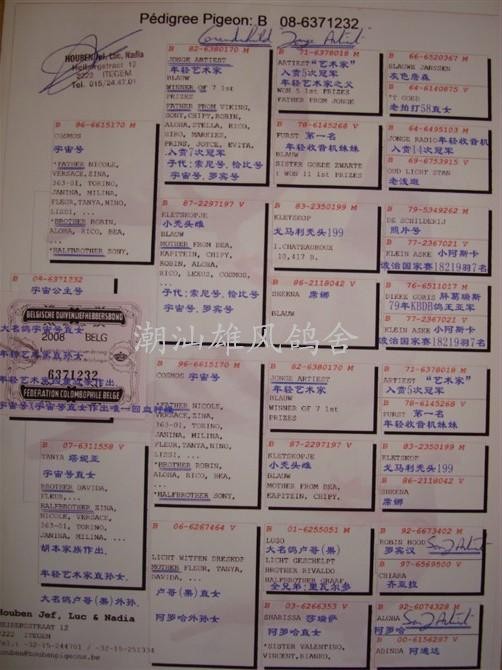 Pédigree Pigeon: B 08-6371232
HOUBEN Jef, Luc, Nadia
2222 ITEGEM
Tel. 015/24.47.01
B 82-6380170 M
JONGE ARTIEST
年轻艺术家
BLAUW
WINNER OF 7 1st
PRIZES
FATHER FROM VIKING,
SONY, CHIPY, ROBIN,
ALOHA, STELLA, RICO,
PRINS, JOYCE, EVITA,
入赏7次冠军
子代:索尼号、恰比号
宇宙号、罗宾号
B 71-6378018 M
ARTIEST "艺术家"
入赏5次冠军
年轻艺术家之父
WON 5 1st PRIZES
FATHER FROM JONGE
B 66-6520367 M
BLAUWE JANSSEN
灰色詹森
B 64-6140875 V
'T GOED
老拍打58直女
B 78-6145268 V
FURST 第一名
年轻收音机妹妹
BLAUW
SISTER GOEDE ZWARTE
B 64-6495103 M
JONGE RADIO年轻收音机
入赏14次冠军
B 69-6753915 V
OUD LICHT STAN
B 96-6615170 M
COSMOS
宇宙号
*FATHER NICOLE,
VERSACE, ZINA,
363-01, TORINO,
JANINA, MILINA,
FLEUR, TANYA, NINO,
LISSI, ...
*BROTHER ROBIN,
ALOHA, RICO, BEA,
...
*HALFBROTHER SONY,
B 87-2297197 V
KLETSKOPJE
小秃头雌
BLAUW
MOTHER FROM BEA,
KAPITEIN, CHIPY,
ROBIN, ALOHA,
RICO, LEXUS, COSMOS,
...
子代:索尼号、恰比号
宇宙号、罗宾号
B 83-2350199 M
KLETSKOP
戈马利秃头199
1.CHATEAUROUX
10,417 B.
B 79-5349262 M
DE SCHILDERIJ
照片号
B 77-2367021 V
KLEIN ASKE 小阿斯卡
波治国家赛18219羽7名
B 86-2118042 V
SHEENA 席娜
B 76-6511017 M
DIKKE GORIS 胖葛瑞斯
79年KBDB鸽王亚军
B 77-2367021 V
KLEIN ASKE 小阿斯卡
波治国家赛18219羽7名
B 08-6371232
宇宙公主号
BELGISCHE DUIVENLIEFHEBBERSBOND
大名鸽宇宙号直女
2008 BELG
6371232
FEDERATION COLOMBOPHILE BELGE
潮汕雄风鸽舍
B 96-6615170 M
COSMOS 宇宙号
*FATHER NICOLE,
VERSACE, ZINA,
363-01, TORINO,
JANINA, MILINA,
FLEUR, TANYA, NINO,
LISSI, ...
*BROTHER ROBIN,
ALOHA, RICO, BEA,
...
*HALFBROTHER SONY,
B 82-6380170 M
JONGE ARTIEST
年轻艺术家
BLAUW
WINNER OF 7 1st
PRIZES
B 71-6378018 M
ARTIEST "艺术家"
入赏5次冠军
B 78-6145268 V
FURST 第一名
年轻收音机妹妹
B 87-2297197 V
KLETSKOPJE
小秃头雌
BLAUW
MOTHER FROM BEA,
KAPITEIN, CHIPY,
B 83-2350199 M
KLETSKOP
戈马利秃头199
B 86-2118042 V
SHEENA
席娜
B 07-6311558 V
TANYA 塔妮亚
宇宙号直女
BROTHER DAVIDA,
FLEUR,...
HALFBROTHER ZINA,
NICOLE, VERSACE,
363-01, TORINO,
JANINA, MILINA,
...
胡本家族作出,
年轻艺术家直孙女,
大名鸽卢哥(奥)外孙.
B 06-6267464 V
LICHT WITPEN DRESKOP
MOTHER FLEUR, TANYA,
DAVIDA, ...
卢哥(奥)直女
阿罗哈号外孙女
B 01-6255051 M
LUGO
大名鸽卢哥(奥)
LICHT GESCHELPT
BROTHER RIVALDO
HALFBROTHER GRAAF,
全兄弟:里瓦尔多
B 92-6673402 M
ROBIN HOOD
罗宾汉
B 97-6569500 V
CHIARA
齐亚拉
B 03-6266353 V
SHARISSA 莎瑞萨
阿罗哈号直女
*SISTER VALENTINO,
VINCENT, BIANKO,
B 92-6074328 M
ALOHA
阿罗哈
B 00-6156297 V
ADINDA 阿迪达
Houben Jef, Luc & Nadia
2222 ITEGEM
Tel.: 32-15-244701 / -32-15-251334
houben@houbenpigeons.be